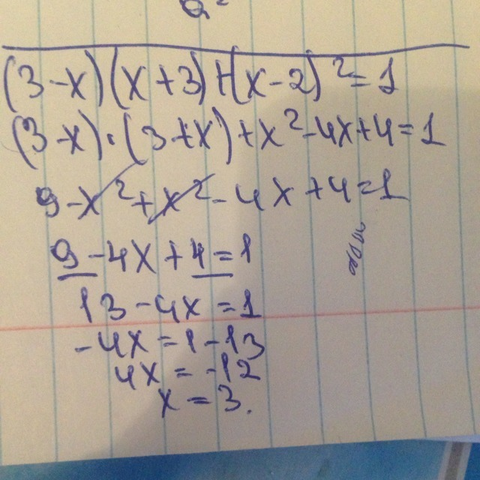 (3-x)(x+3)+(x-2)²=1
(3-x)·(3+x)+x²-4x+4=1
9-x²+x²-4x+4=1
9-4x+4=1
13-4x=1
-4x=1-13
4x=-12
x=3.